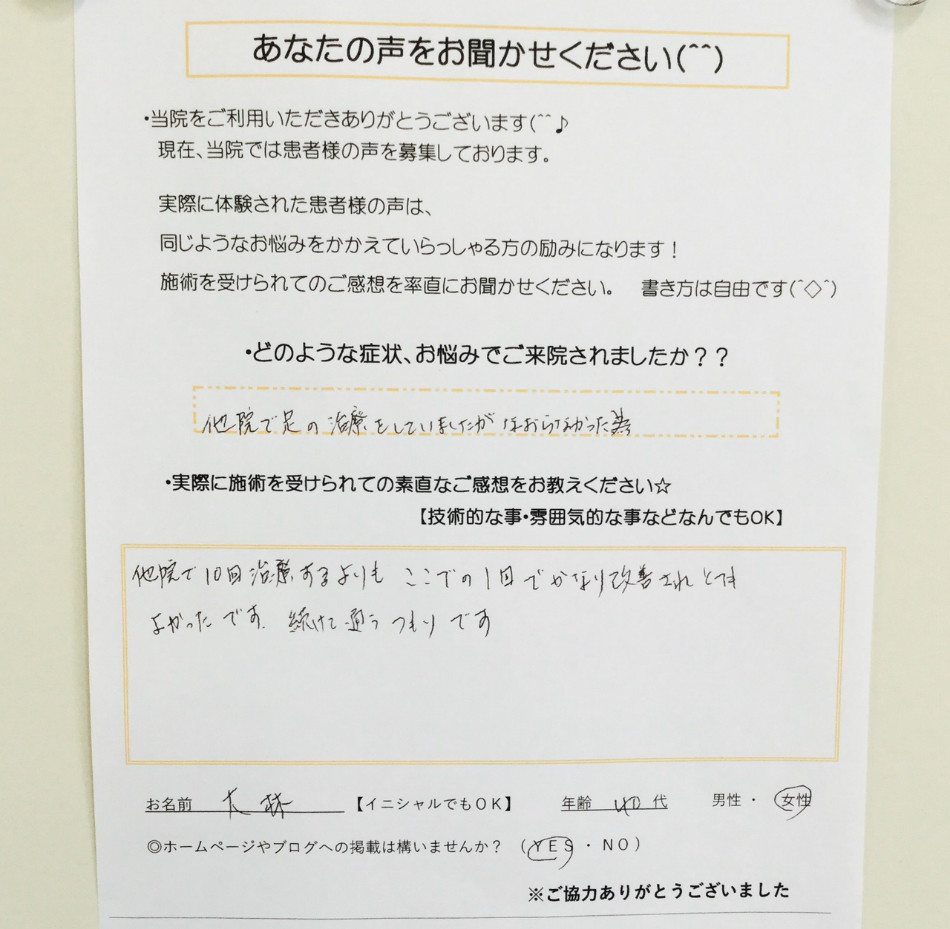 あなたの声をお聞かせください(^^)
・当院をご利用いただきありがとうございます(^^♪
現在、当院では患者様の声を募集しております。
実際に体験された患者様の声は、
同じようなお悩みをかかえていらっしゃる方の励みになります！
施術を受けられてのご感想を率直にお聞かせください。 書き方は自由です(^◇^)
・どのような症状、お悩みでご来院されましたか？？
他院で足の治療をしていましたがなおらなかった為
・実際に施術を受けられての素直なご感想をお教えください☆
【技術的な事・雰囲気的な事などなんでもOK】
他院で10回治療するよりも ここでの1回でかなり改善されとても
よかったです. 続けて通うつもりです
お名前 大林 【イニシャルでもOK】 年齢 40 代 男性・女性
◎ホームページやブログへの掲載は構いませんか？ (YES・NO)
※ご協力ありがとうございました